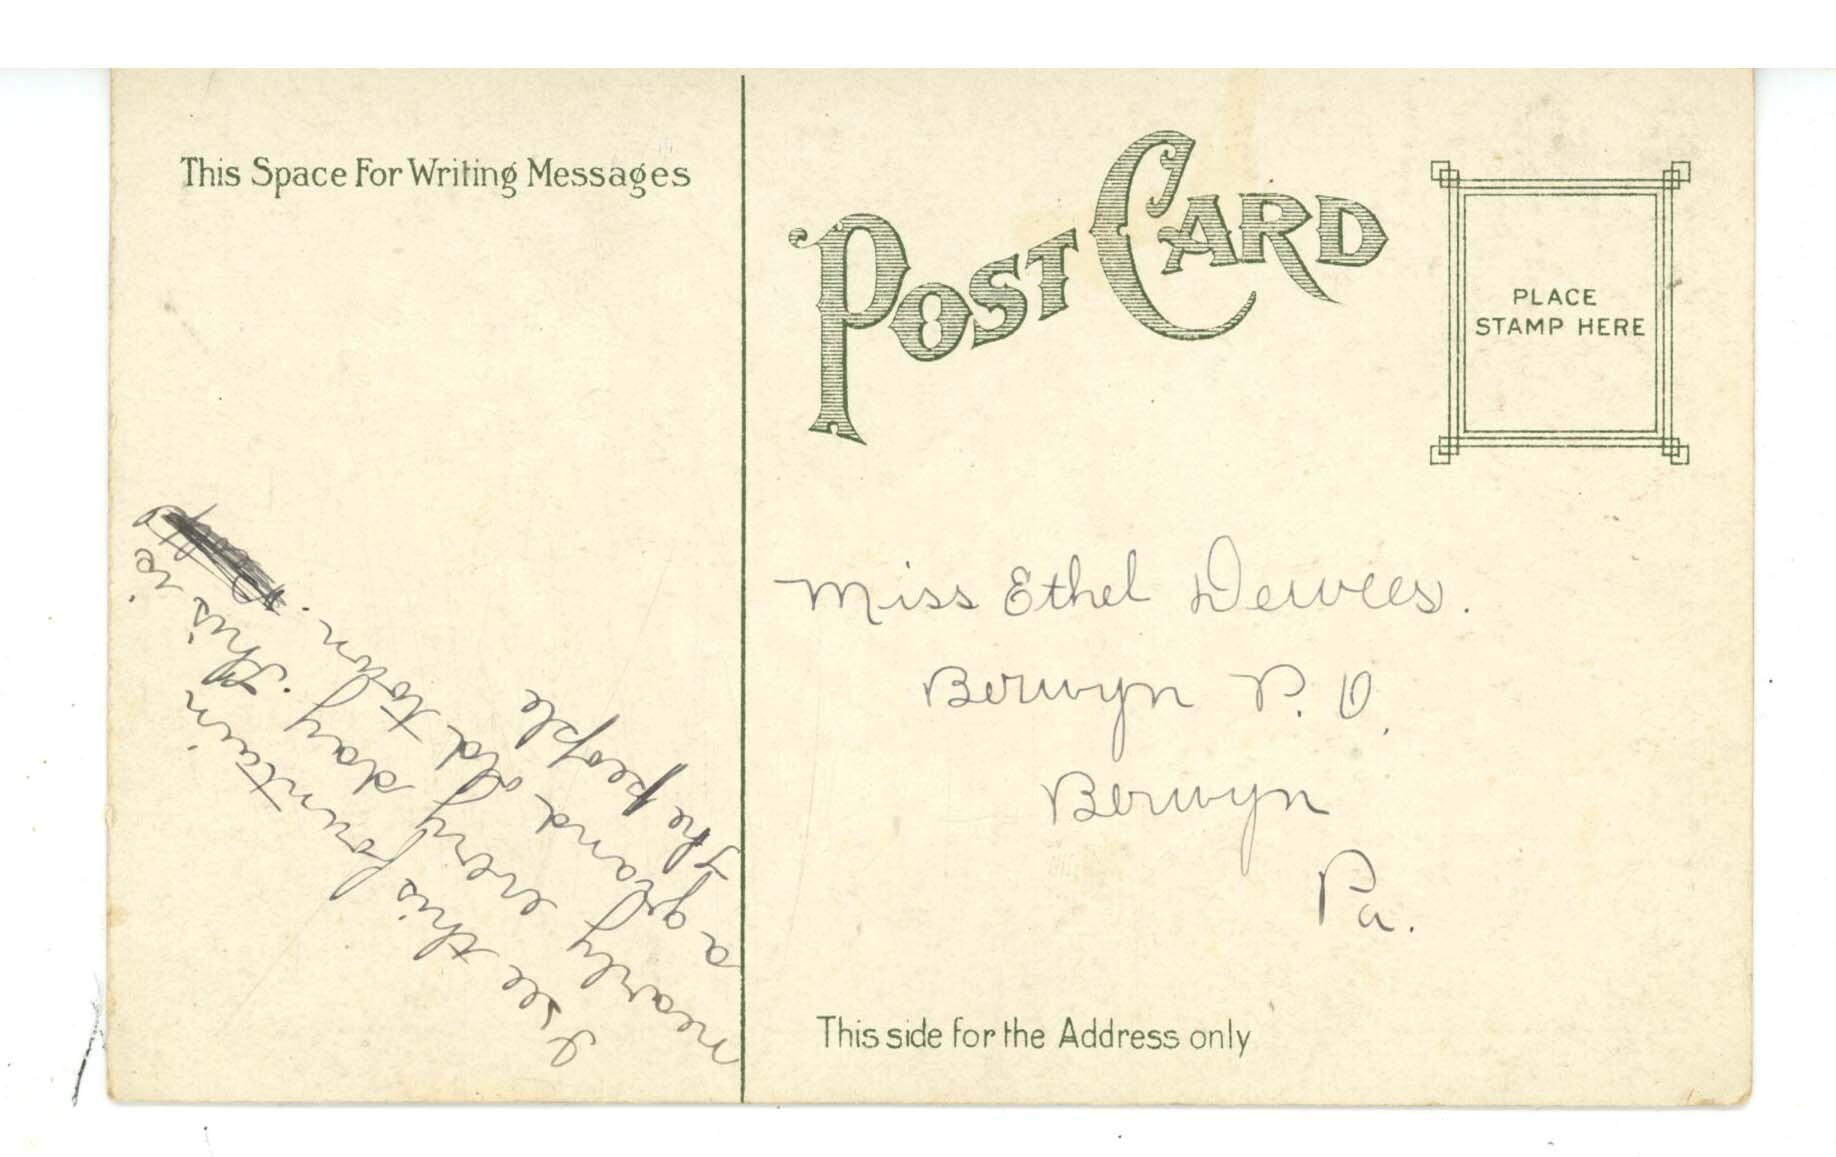 This Space For Writing Messages
I see this fountain
nearly every day. This is
a grand old town.
The people
POST CARD
PLACE
STAMP HERE
Miss Ethel Dewees.
Berwyn P. O.
Berwyn
Pa.
This side for the Address only